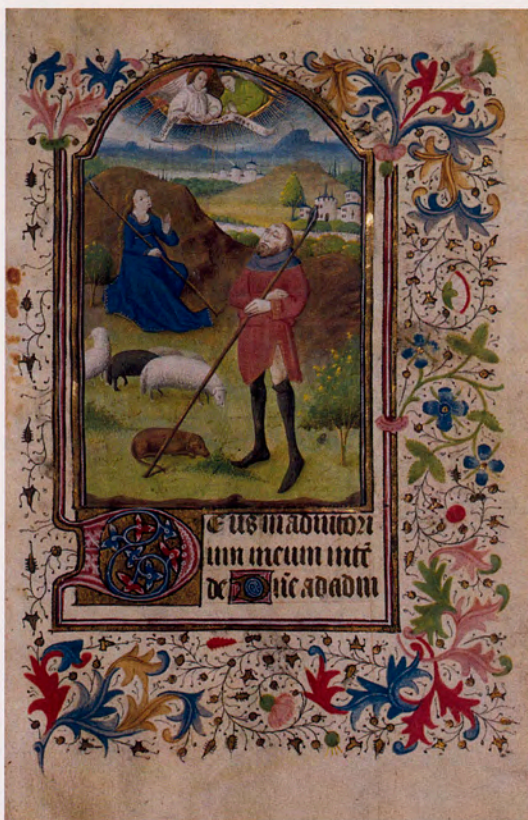 Deus in adiutori
um meum intē
de Dn̄e ad adiu